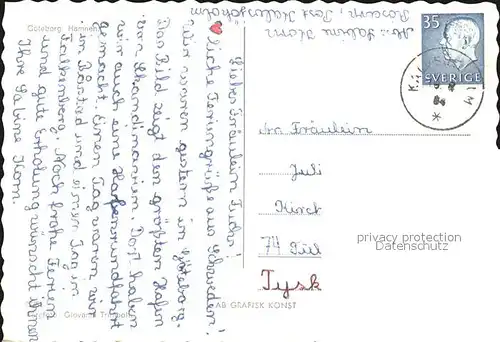 Göteborg. Hamnen
Liebes Fräulein Fuchs!
♥liche Feriengrüße aus Schweden!
Wir waren gestern in Göteborg.
Das Bild zeigt den größten Hafen
von Skandinavien. Dort haben
wir auch eine Hafenrundfahrt
gemacht. Einen Tag waren wir
in Båstad und einen Tag in
Falkenberg. Noch frohe Ferien
und gute Erholung wünscht Ihnen
Ihre Sabine Korn.
Abs.: Sabine Korn
Post
35
SVERIGE
An Fräulein
Juli
74
Tysk
privacy protection
Datenschutz
AB GRAFISK KONST
Giovanni